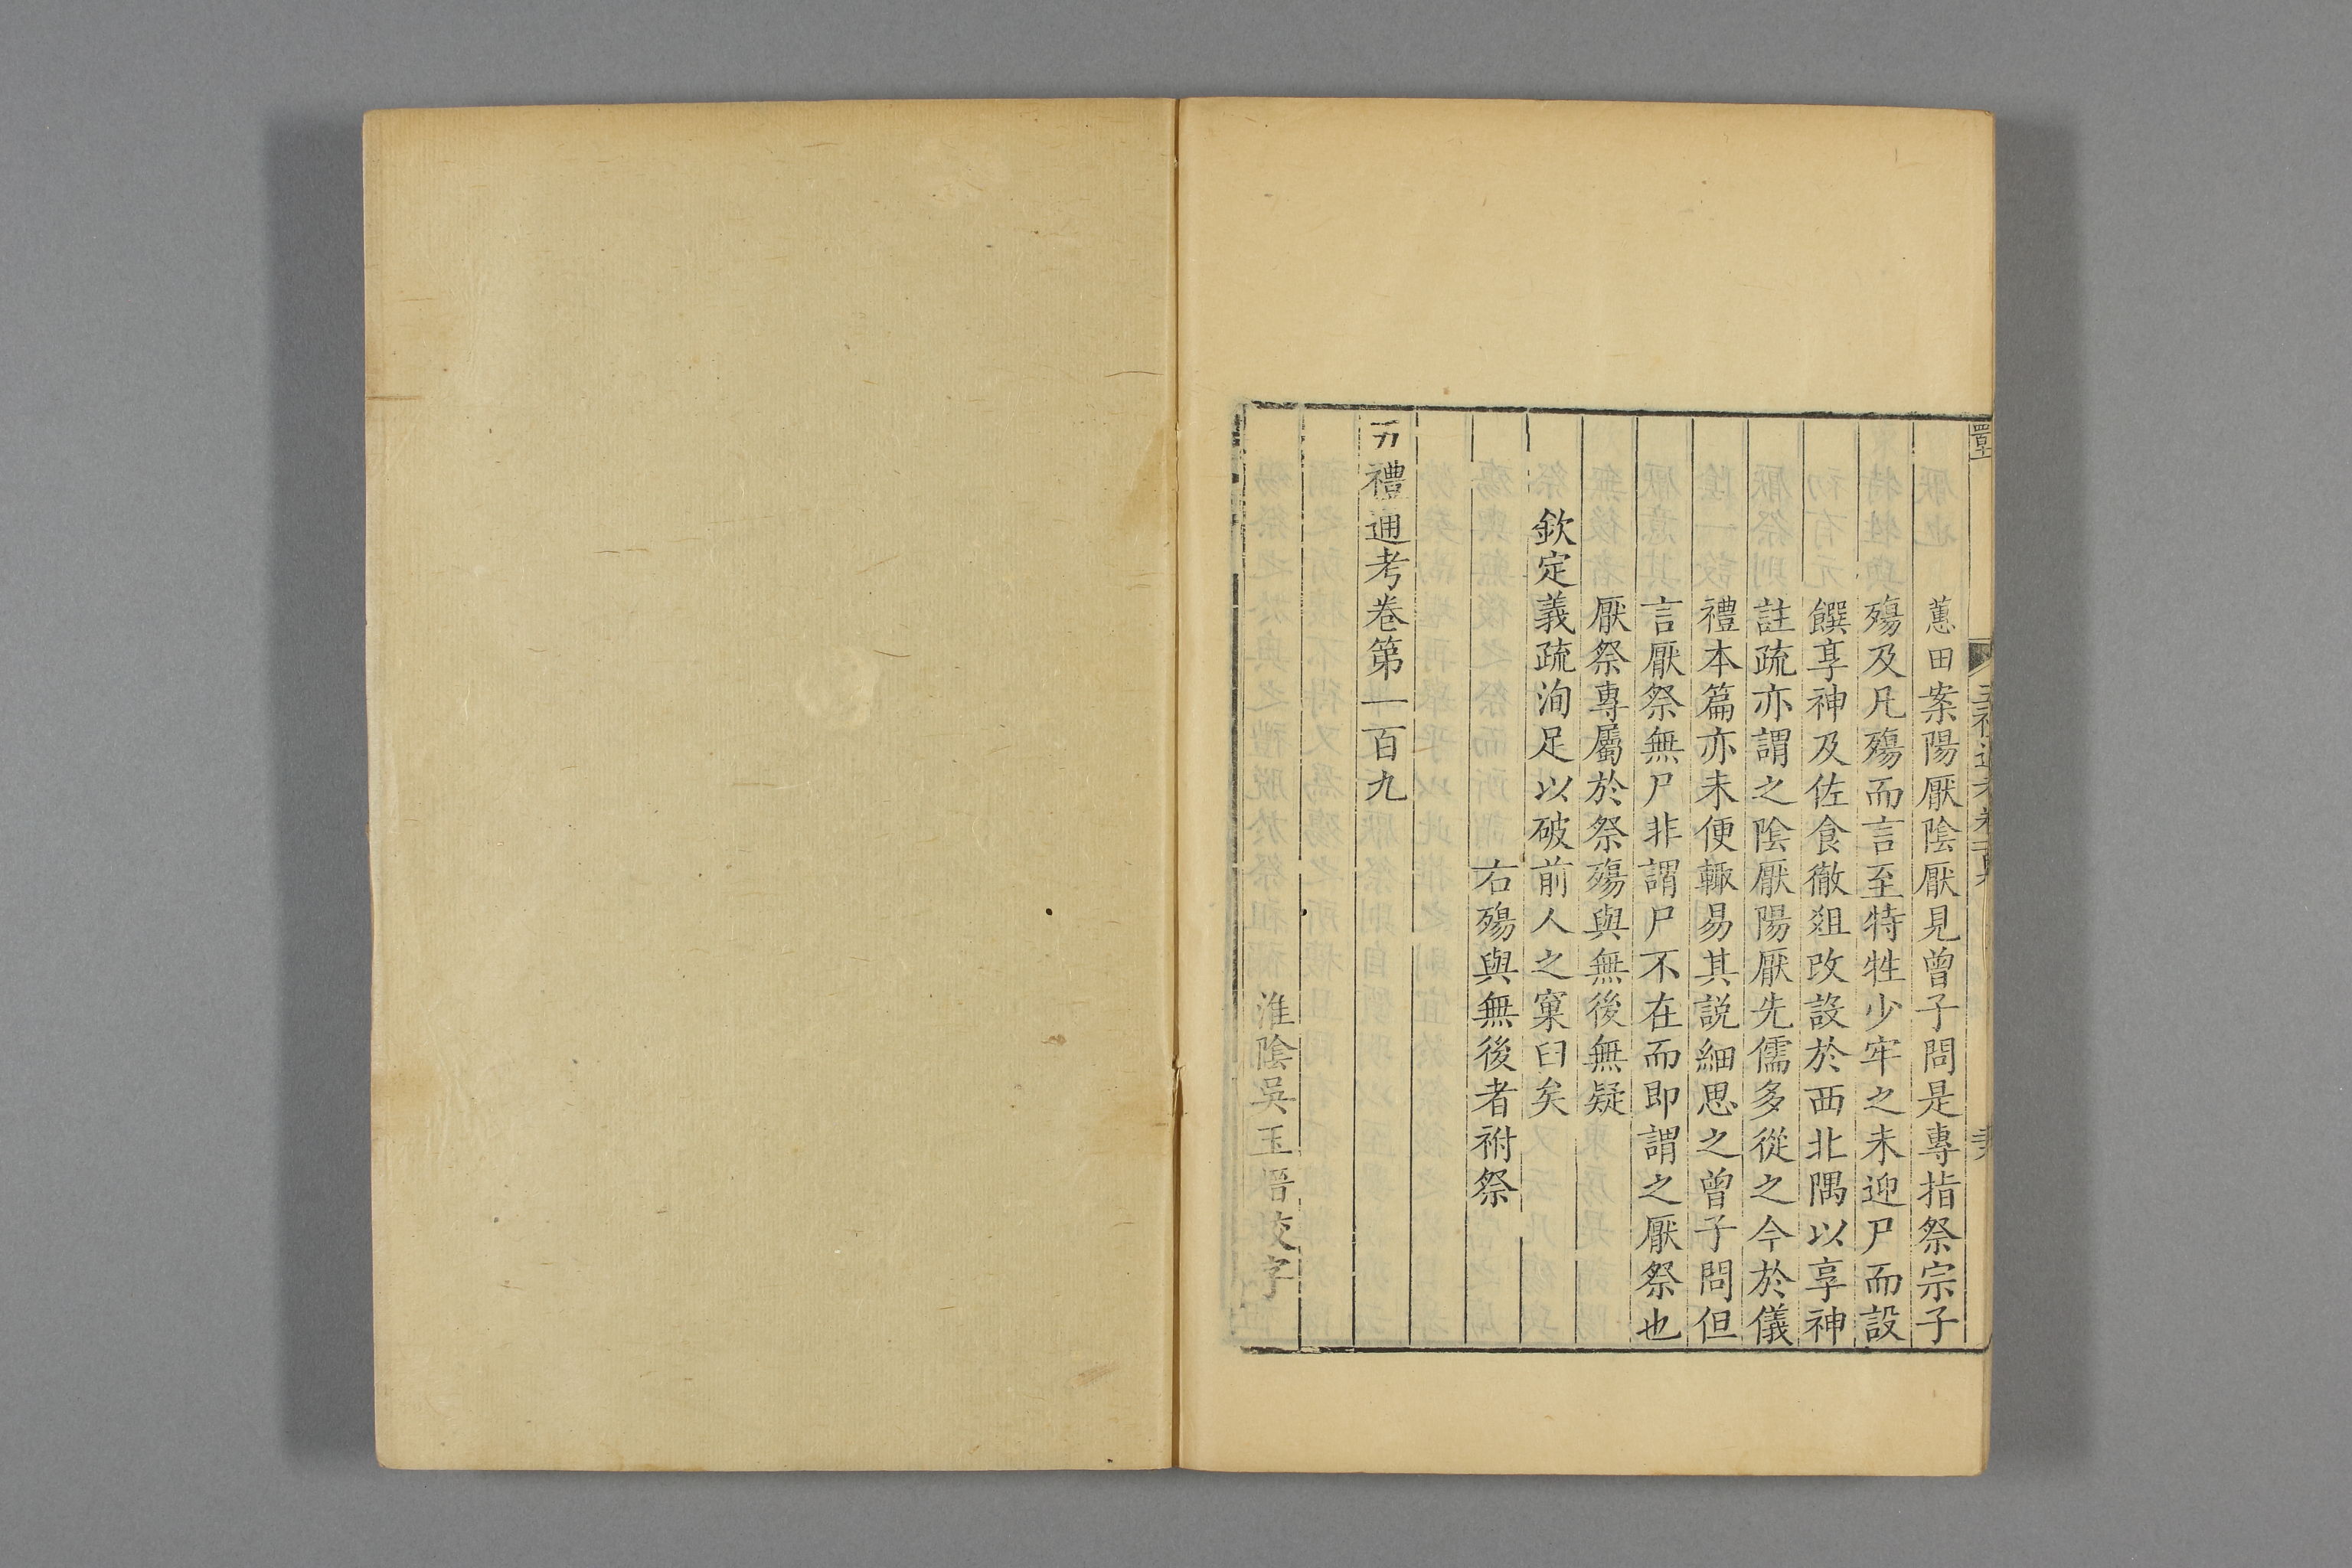 蕙田案陽厭陰厭見曾子問是專指祭宗子
殤及凡殤而言至特牲少牢之未迎尸而設
饌享神及佐食徹俎改設於西北隅以享神
註疏亦謂之陰厭陽厭先儒多從之今於儀
禮本篇亦未便輙易其説細思之曾子問但
言厭祭無尸非謂尸不在而即謂之厭祭也
厭祭專屬於祭殤與無後無疑
欽定義疏洵足以破前人之窠臼矣
右殤與無後者祔祭
禮通考卷第一百九
淮陰吳玉搢校字